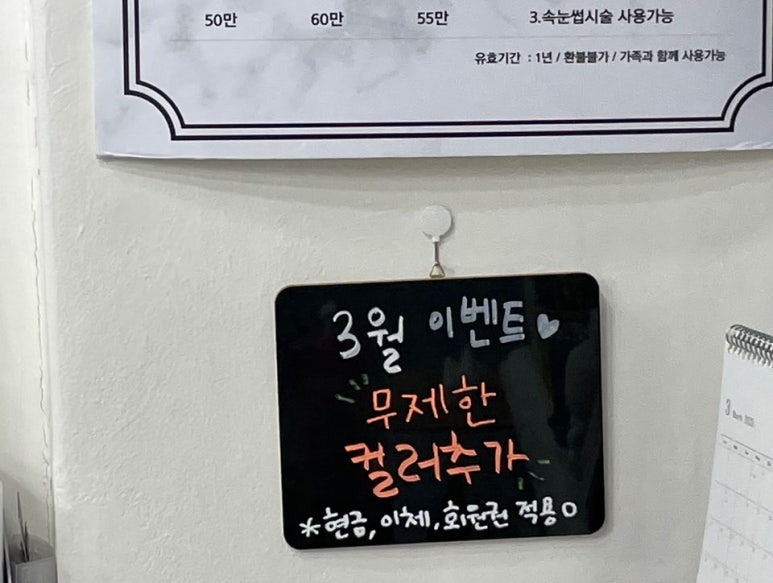 50만 60만 55만 3.속눈썹시술 사용가능
유효기간 : 1년 / 환불불가 / 가족과 함께 사용가능
3월 이벤트♥
무제한
컬러추가
*현금, 이체, 회원권 적용O
3 March